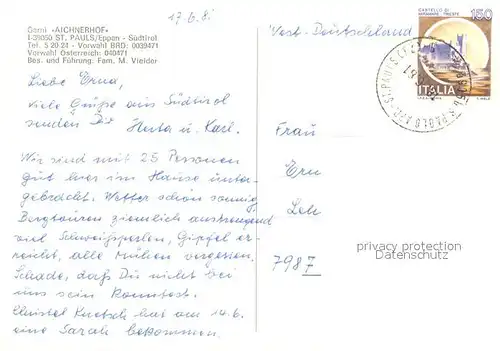 17.6.8.
Garni «AICHNERHOF»
I-39050 ST. PAULS/Eppan - Südtirol
Tel. 5 20 24 - Vorwahl BRD: 0039471
Vorwahl Österreich: 040471
Bes. und Führung: Fam. M. Vieider
Liebe Erna,
viele Grüße aus Südtirol
senden Dir Huta u. Karl.
Wir sind mit 25 Personen
gut hier im Hause unter-
gebracht. Wetter schön sonnig,
Bergtouren ziemlich anstrengend
viel Schweißperlen. Gipfel er-
reicht, alle Mühen vergessen.
Schade, daß Du nicht bei
uns sein konntest.
Christel hat am 14.6.
eine Sarah bekommen.
West-Deutschland
CASTELLO DI
MIRAMARE - TRIESTE
150
ITALIA
Frau
Ern
Leh
7987
privacy protection
Datenschutz